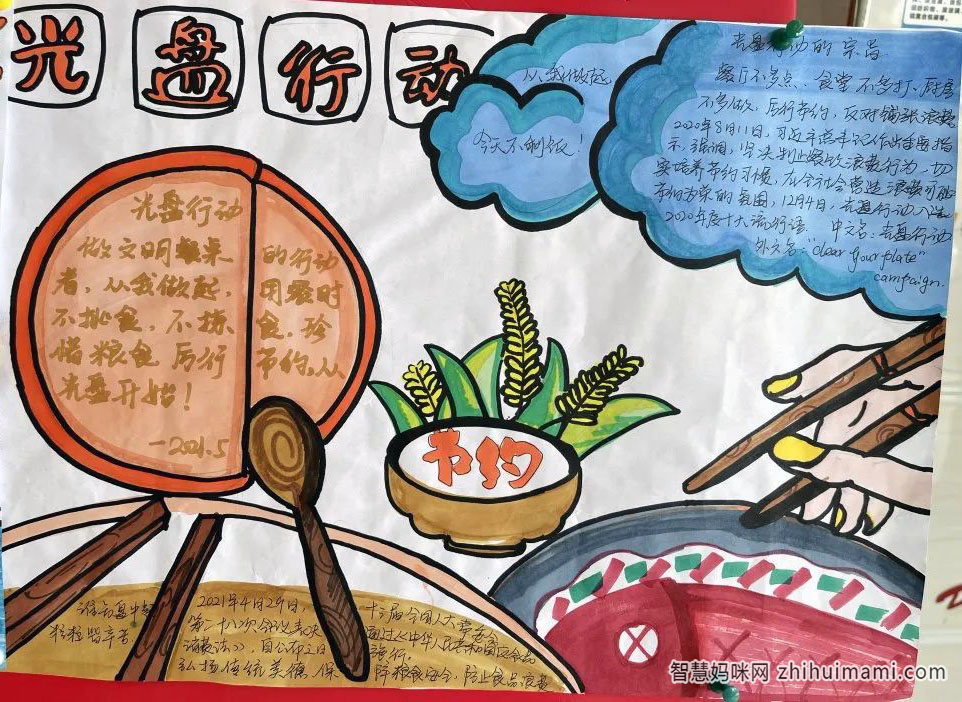 光盘行动
从我做起
今天不剩饭！
光盘行动的宗旨
餐厅不多点、食堂不多打、厨房
不多做，厉行节约，反对铺张浪费
2020年8月11日，习近平总书记作出重要指
示，强调，坚决制止餐饮浪费行为，切
实培养节约习惯，在全社会营造浪费可耻
节约为荣的氛围，12月4日，光盘行动入选
2020年度十大流行语。 中文名：光盘行动
外文名："clear your plate"
campaign.
光盘行动
做文明餐桌的行动
者，从我做起，用餐时
不挑食，不拣食，珍
惜粮食 厉行节约，从
光盘开始！
—2021.5
节约
谁知盘中餐
粒粒皆辛苦
2021年4月29日，十三届全国人大常委会
第二十八次会议表决通过《中华人民共和国反食品
浪费法》，自公布之日施行。
弘扬传统美德，保障粮食安全，防止食品浪费
智慧妈咪网 zhihuimami.com